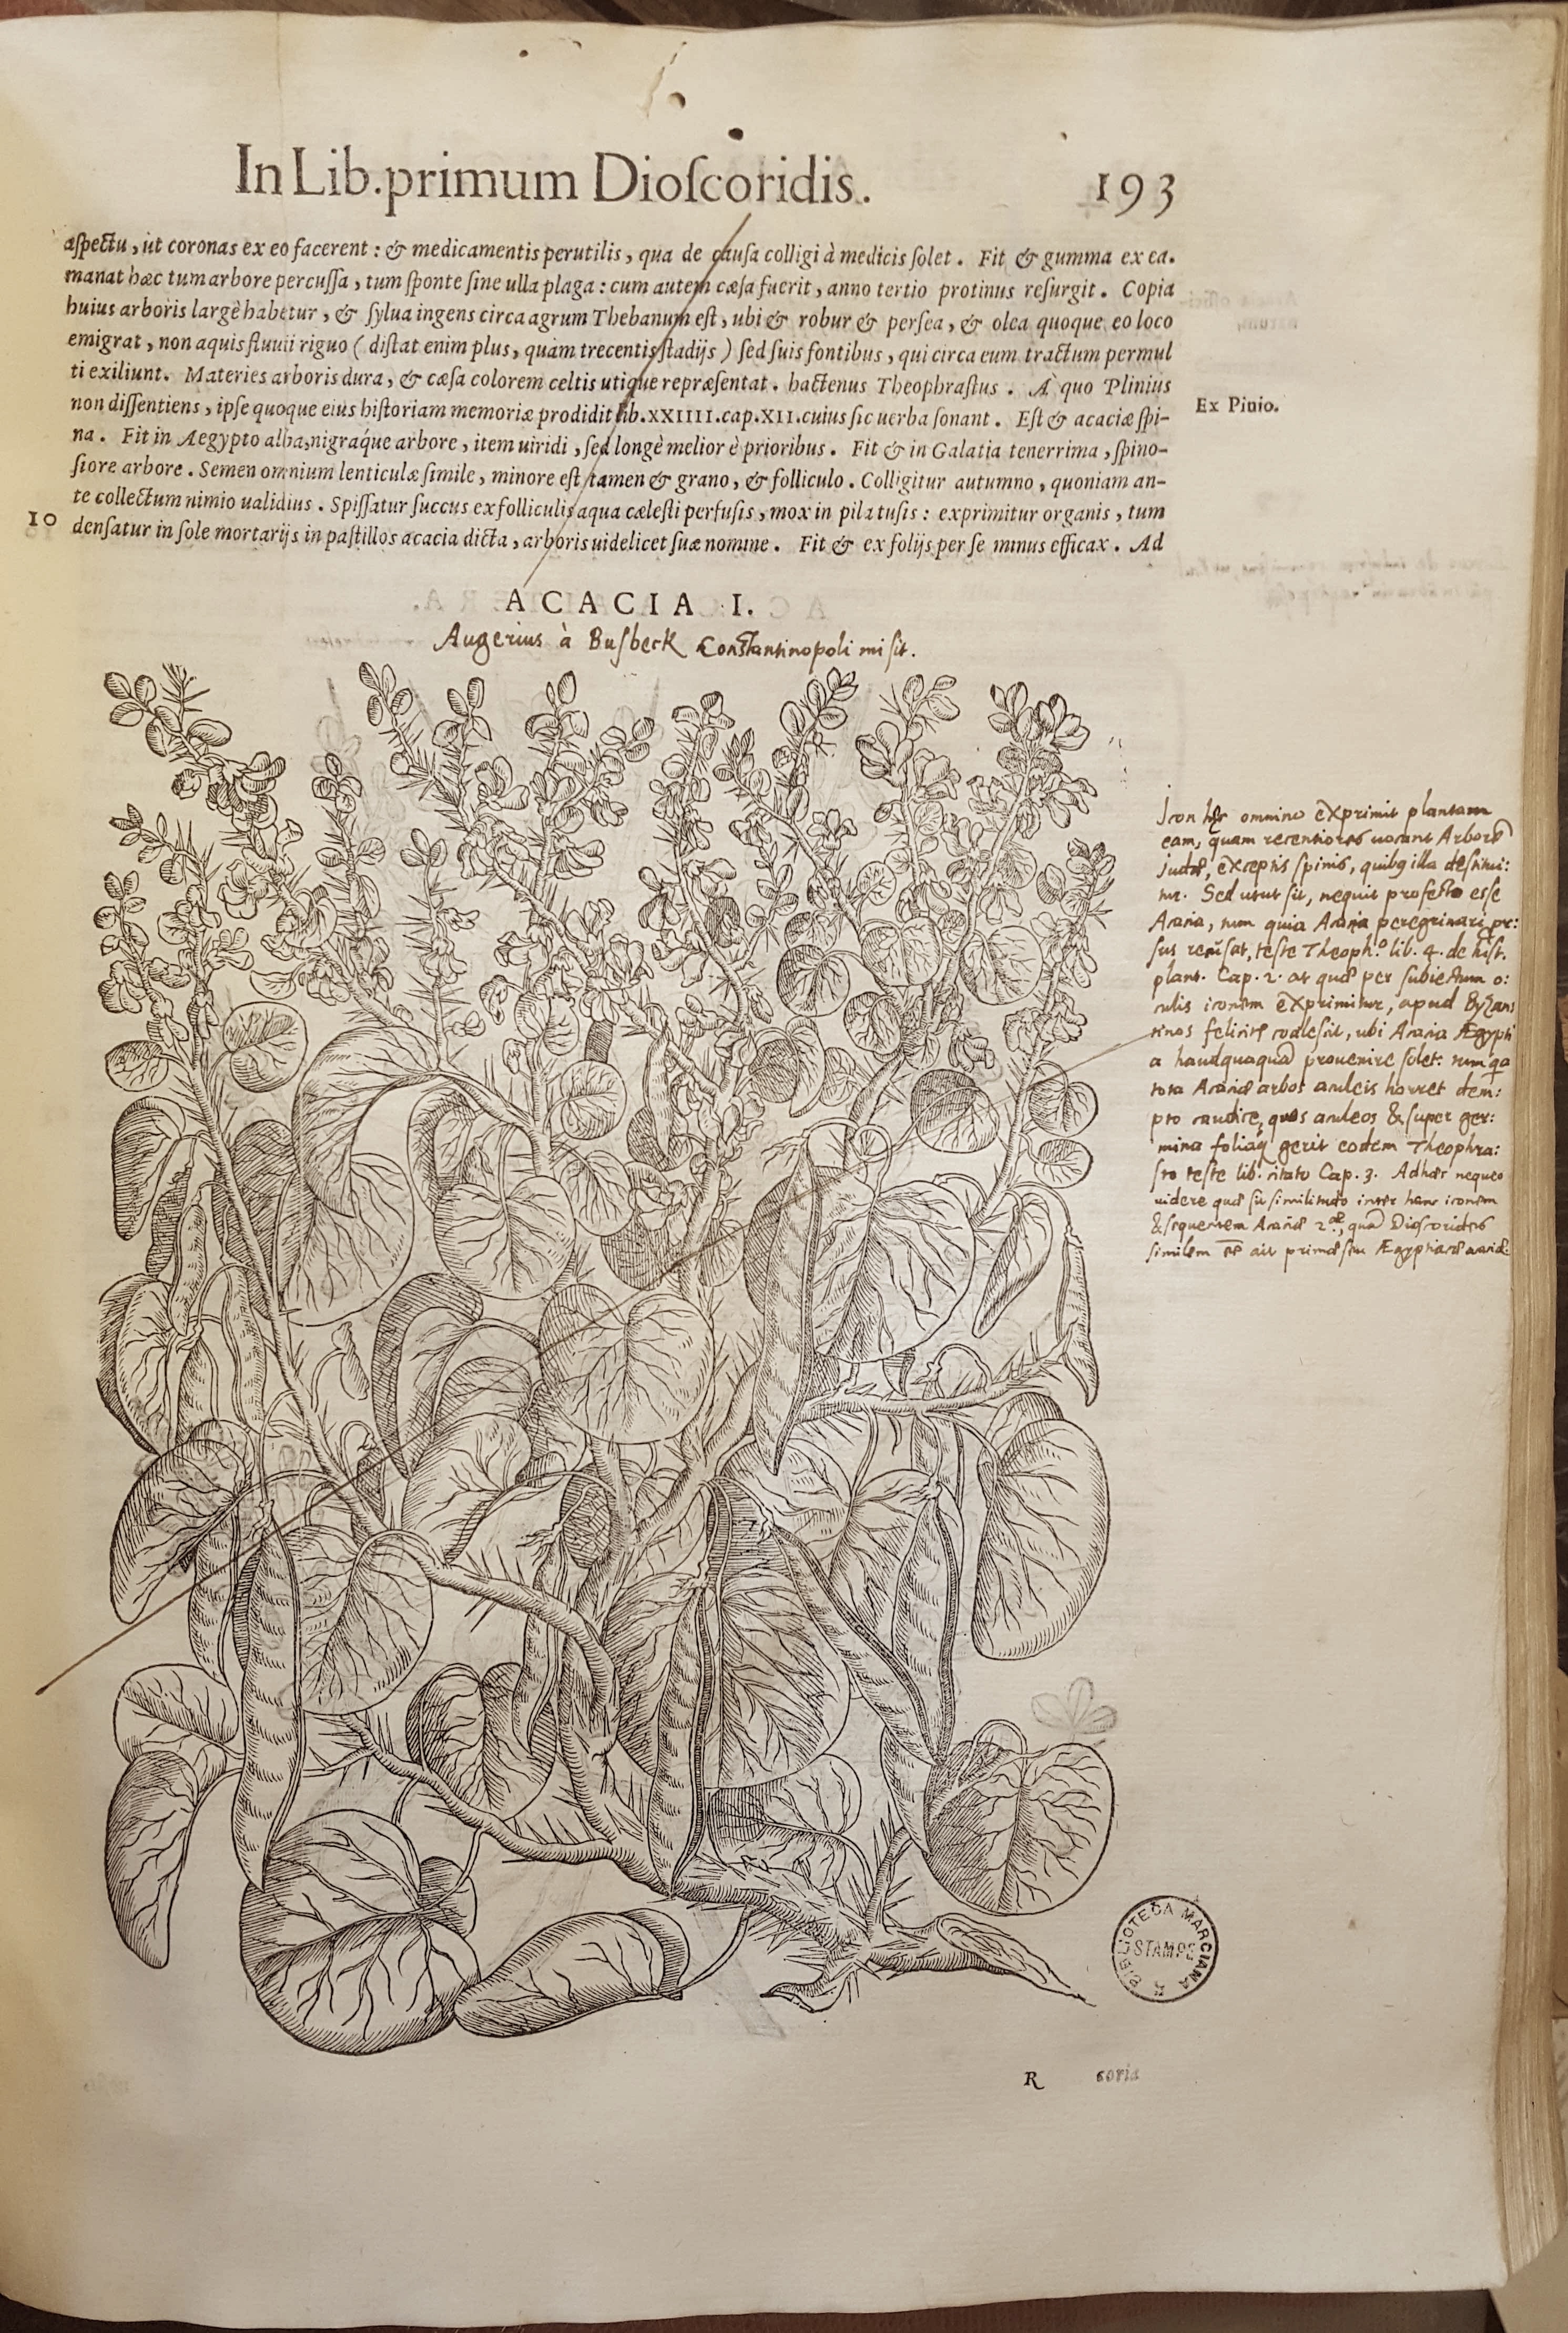 In Lib. primum Dioſcoridis. 193
aſpectu, ut coronas ex eo facerent: & medicamentis perutilis, qua de cauſa colligi à medicis ſolet. Fit & gumma ex ea.
manat hæc tum arbore percuſſa, tum ſponte ſine ulla plaga: cum autem cæſa fuerit, anno tertio protinus reſurgit. Copia
huius arboris largè habetur, & ſylua ingens circa agrum Thebanum eſt, ubi & robur & perſea, & olea quoque eo loco
emigrat, non aquis fluuii riguo ( diſtat enim plus, quam trecentis ſtadijs ) ſed ſuis fontibus, qui circa eum tractum permul
ti exiliunt. Materies arboris dura, & cæſa colorem celtis utique repræſentat. hactenus Theophraſtus. A' quo Plinius
non diſſentiens, ipſe quoque eius hiſtoriam memoriæ prodidit lib. XXIIII. cap. XII. cuius ſic uerba ſonant. Eſt & acaciæ ſpi-
Ex Plinio.
na. Fit in Aegypto alba, nigraq́ue arbore, item uiridi, ſed longè melior è prioribus. Fit & in Galatia tenerrima, ſpino-
ſiore arbore. Semen omnium lenticulæ ſimile, minore eſt tamen & grano, & folliculo. Colligitur autumno, quoniam an-
te collectum nimio ualidius. Spiſſatur ſuccus ex folliculis aqua cæleſti perfuſis, mox in pila tuſis: exprimitur organis, tum
10
denſatur in ſole mortarijs in paſtillos acacia dicta, arboris uidelicet ſuæ nomine. Fit & ex folijs per ſe minus efficax. Ad
ACACIA I.
Augerius à Buſbeck Conſtantinopoli miſit.
Icon hęc omnino exprimit plantam
eam, quam recentiores uocant Arborē
Judæ, exceptis ſpinis, quibꝫ illa deſtitui:
tur. Sed utut ſit, nequit profecto eſſe
Acacia, tum quia Acacia peregrinari pr:
ſus recuſat, teſte Theoph.º lib. 4. de hiſt.
plant. Cap. 2. at quæ per ſubiectam o:
culis iconem exprimitur, apud Byzan
tinos feliciter adoleſcit, ubi Acacia Ægypti
a haudquaquā prouenire ſolet: tum qa
tota Acaciæ arbor aculeis horret dem:
pto caudice, quos aculeos & ſuper ger:
mina foliaq̃ gerit eodem Theophra:
ſto teſte lib. citato Cap. 3. Adhæc nequeo
uidere quæ ſit ſimilitudo inter hanc iconem
& ſequentem Acaciā 2ā, quā Dioſcorides
ſimilem eē ait primæ ſeu Ægyptiacæ acaciæ.
BIBLIOTECA MARCIANA
STAMPE
R coria